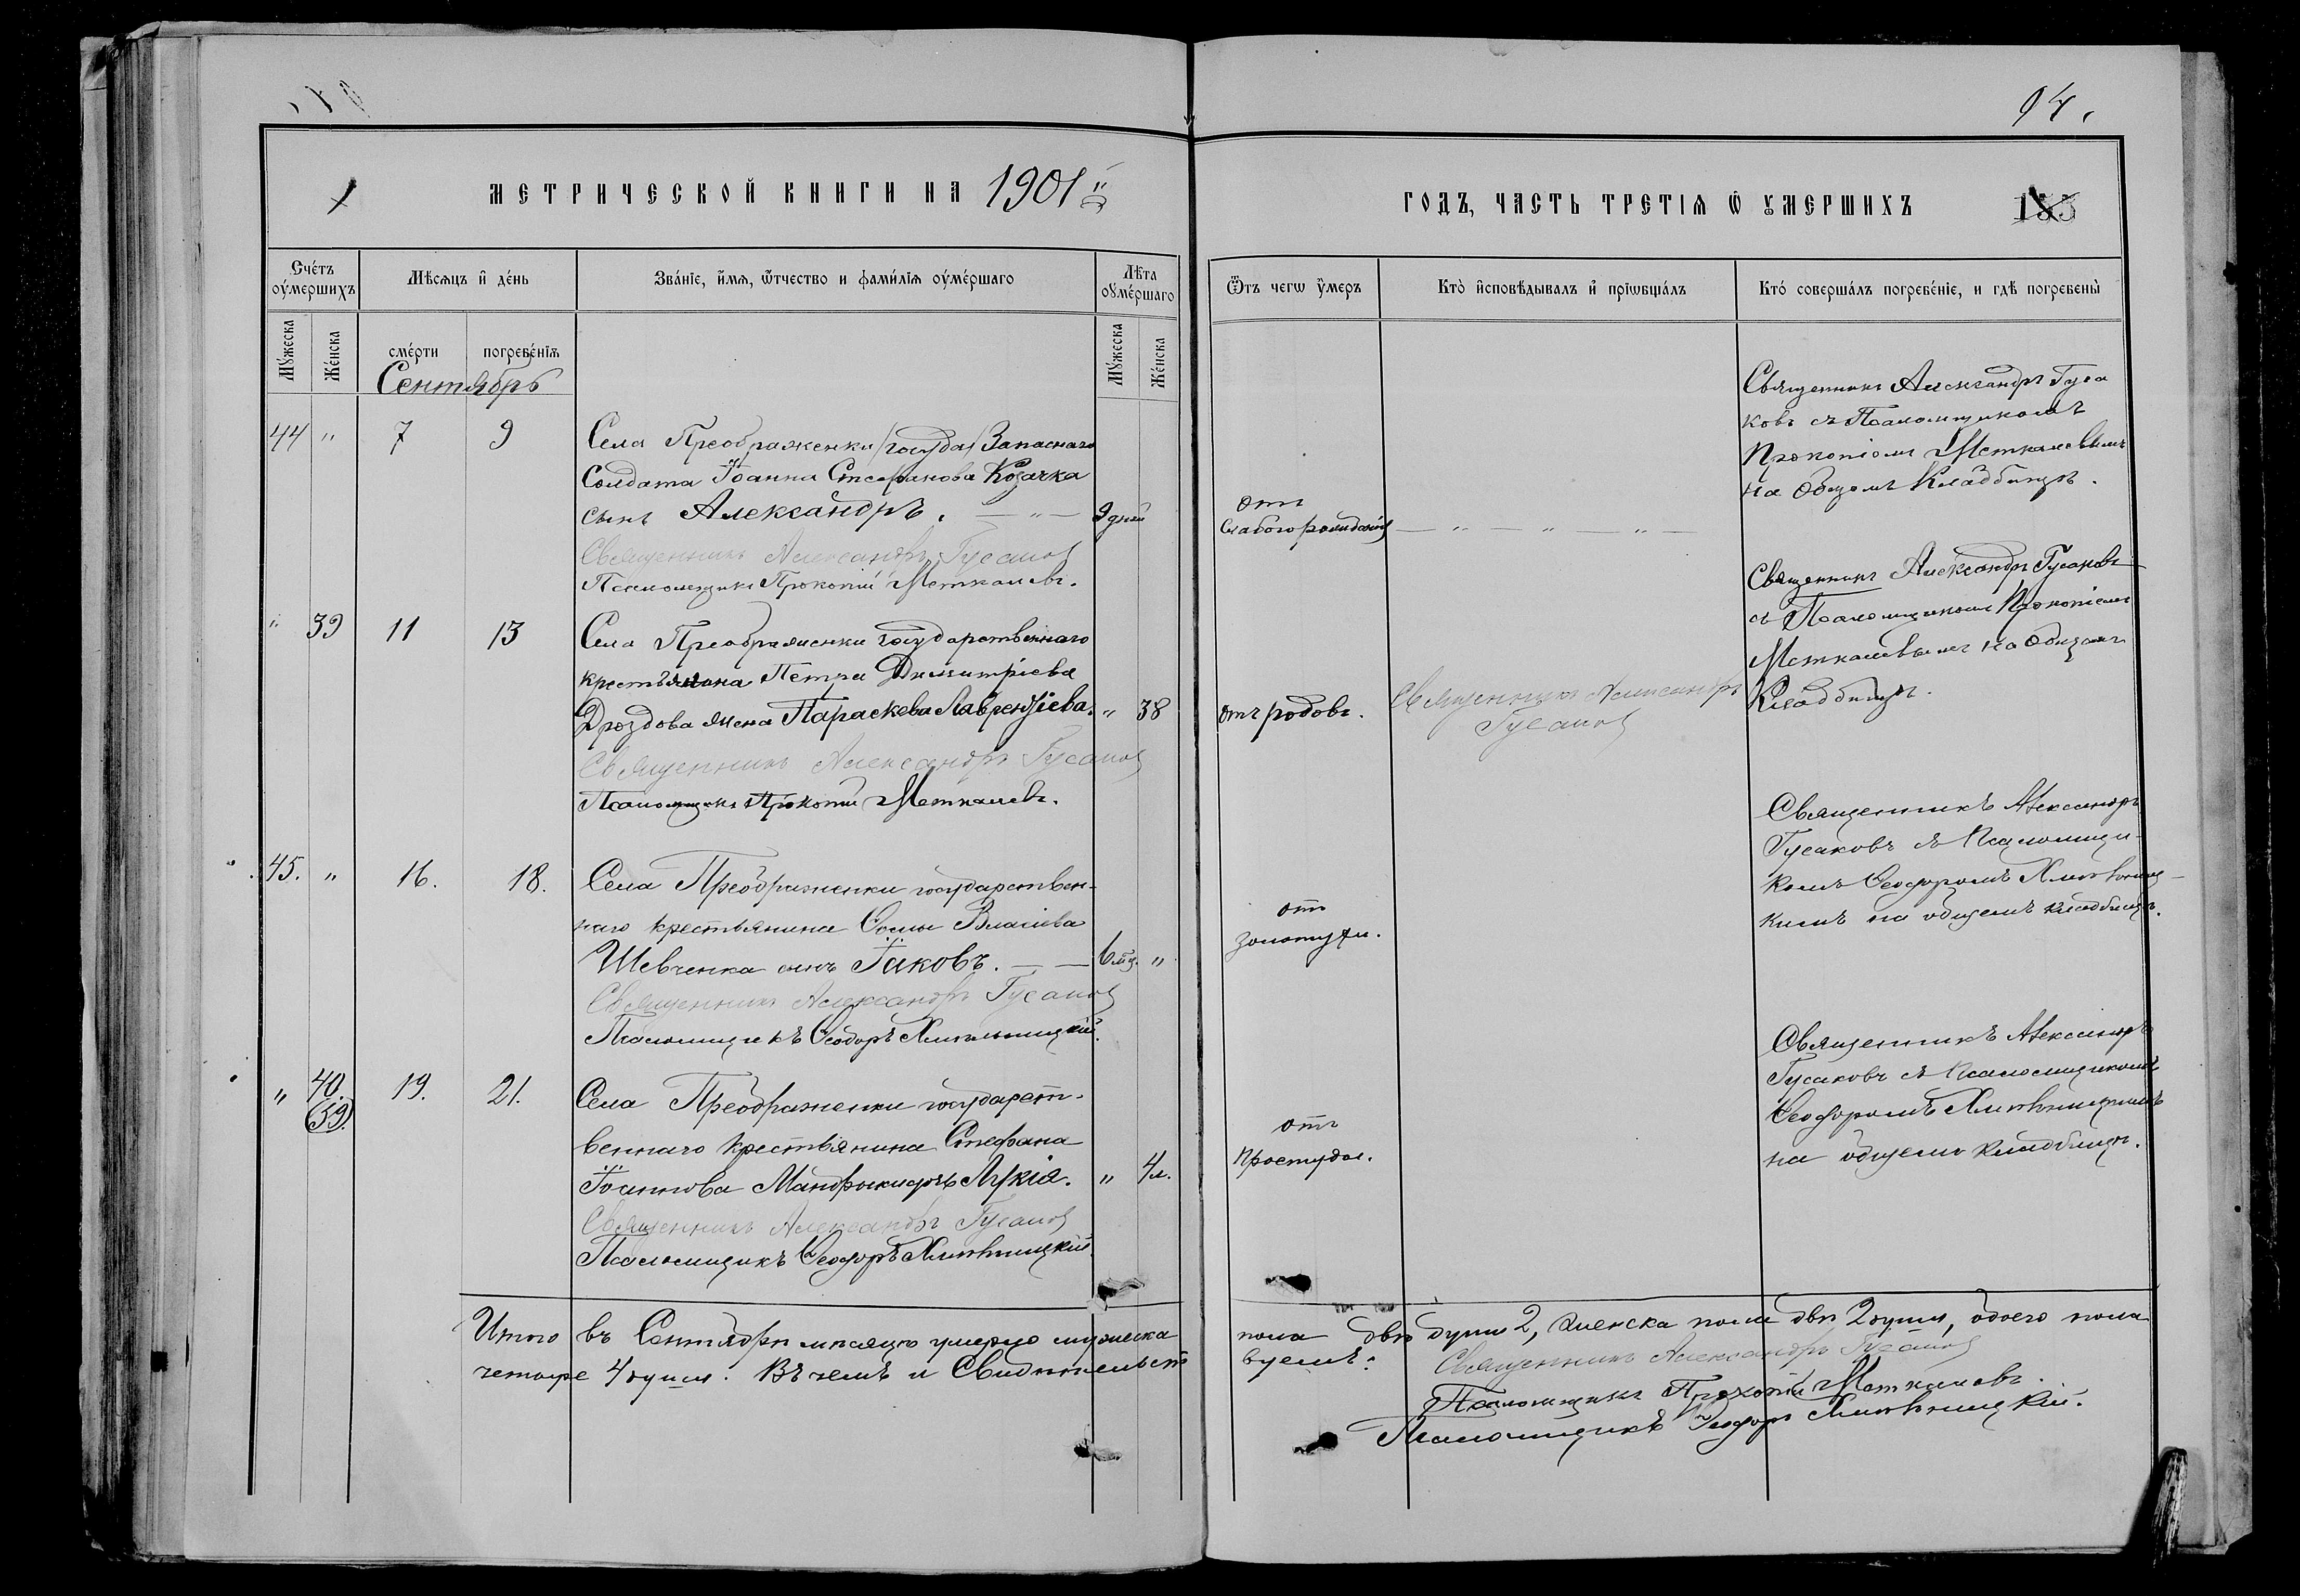 94.
МЕТРИЧЕСКОЙ КНИГИ НА 1901й
ГОДЪ, ЧАСТЬ ТРЕТІѦ Ѿ ОУМЕРШИХЪ
185
Сче́тъ оумершихъ
Мѣсяцъ и де́нь
Зва́ніе, и́мя, ѿтчество и фами́лія оуме́ршаго
Лѣта оуме́ршаго
Му́жеска
Же́нска
сме́рти
погребе́нія
Му́жеска
Же́нска
Ѿтъ чегѡ у́меръ
Кто̀ исповѣ́дывалъ и пріѡбща́лъ
Кто́ соверша́лъ погребе́ніе, и гдѣ̀ погребены̀
Сентябрь
44 " 7 9
Села Преображенки (государ) Запаснаго
Солдата Іоанна Стефанова Козачка
сынъ Александръ. — " — 9 дней
Священникъ Александръ Гусаковъ
Псаломщикъ Прокопій Меткалевъ.
отъ
слабого рожденія — " — " — " —
Священникъ Александръ Гуса
ковъ съ Псаломщикомъ
Прокопіемъ Меткалевымъ
на общемъ Кладбищѣ.
" 39 11 13
Села Преображенки государственнаго
крестьянина Петра Димитріева
Дроздова жена Параскева Лаврентіева. " 38
Священникъ Александръ Гусаковъ
Псаломщикъ Прокопій Меткалевъ.
отъ родовъ.
Священникъ Александръ
Гусаковъ
Священникъ Александръ Гусаковъ
съ Псаломщикомъ Прокопіемъ
Меткалевымъ на общемъ
Кладбищѣ.
45. " 16. 18.
Села Преображенки государствен-
наго крестьянина Ѳомы Власіева
Шевченка сынъ Іаковъ. — — 6 мц. "
Священникъ Александръ Гусаковъ
Псаломщикъ Ѳеодоръ Хмѣльницкій.
отъ
золотухи.
Священникъ Александръ
Гусаковъ съ Псаломщи-
комъ Ѳеодоромъ Хмѣльниц-
кимъ на общемъ кладбищѣ.
" 40. 19. 21.
(39)
Села Преображенки государст-
веннаго крестьянина Стефана
Іоаннова Мандрыки дочь Лукія. " 4 л.
Священникъ Александръ Гусаковъ
Псаломщикъ Ѳеодоръ Хмѣльницкій.
отъ
простуды.
Священникъ Александръ
Гусаковъ съ Псаломщикомъ
Ѳеодоромъ Хмѣльницкимъ
на общемъ кладбищѣ.
Итого въ Сентябрѣ мѣсяцѣ умерло мужеска пола двѣ души 2, женска пола двѣ 2 души, обоего пола
четыре 4 души. Въ чемъ и Свидѣтельствуемъ:
Священникъ Александръ Гусаковъ
Псаломщикъ Прокопій Меткалевъ.
Псаломщикъ Ѳеодоръ Хмѣльницкій.